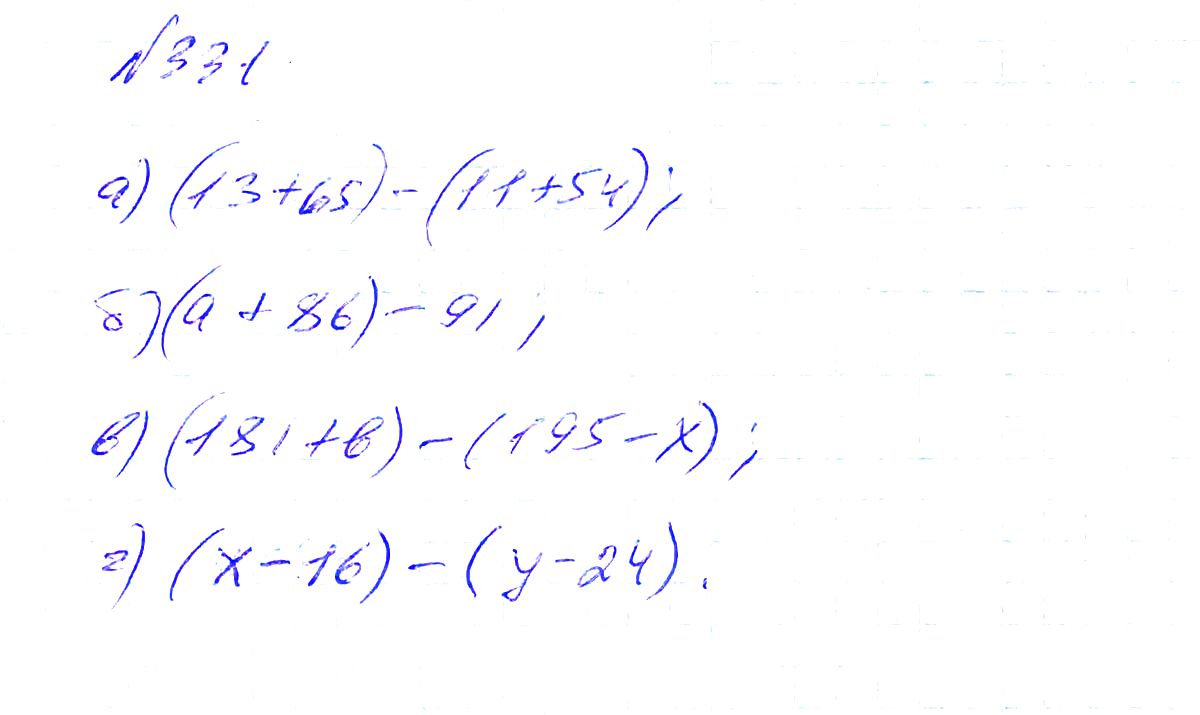 №331
а) (13+65)-(11+54);
б) (а + 86) - 91;
в) (181+в)-(195-х);
г) (х-16)-(у-24).